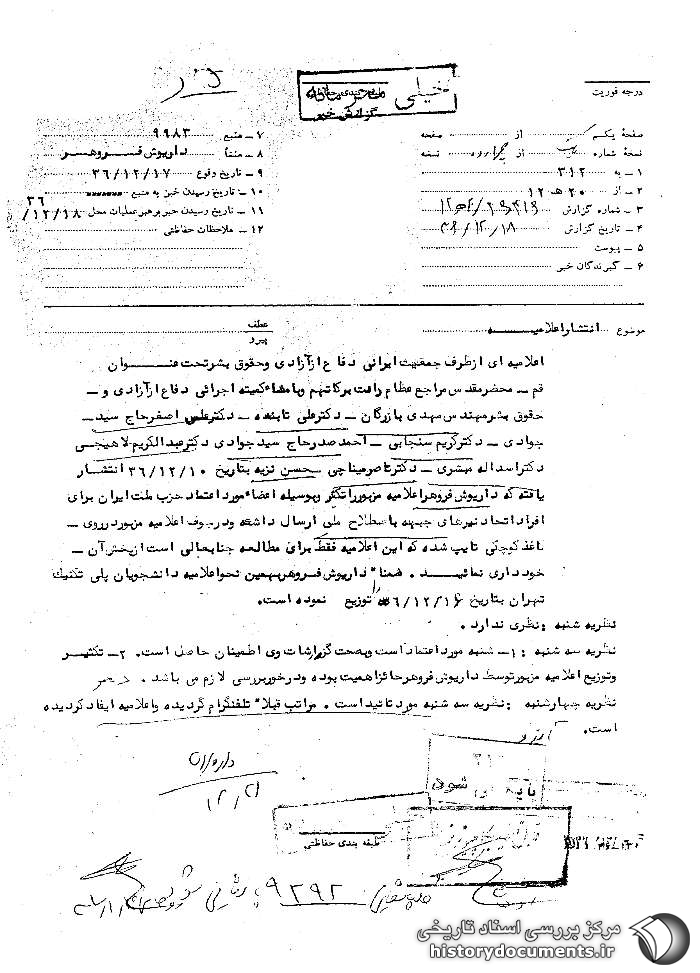 خیلی محرمانه
گزارش خبر
درجه فوریت
صفحه یکم از صفحه
نسخه شماره یک از چهار نسخه
۱ - به ۳۱۲
۲ - از ۲۰ هـ ۱۲
۳ - شماره گزارش
۴ - تاریخ گزارش ۳۶/۱۲/۱۸
۵ - پیوست
۶ - گیرندگان خبر
۷ - منبع ۹۹۸۳
۸ - منشأ داریوش فروهر
۹ - تاریخ وقوع ۳۶/۱۲/۱۷
۱۰ - تاریخ رسیدن خبر به منبع
۱۱ - تاریخ رسیدن خبر به رهبر عملیات محل ۳۶/۱۲/۱۸
۱۲ - ملاحظات حفاظتی
موضوع انتشار اعلامیه
عطف
پیرو
اعلامیه ای از طرف جمعیت ایرانی دفاع از آزادی و حقوق بشر تحت عنوان
قم - محضر مقدس مراجع عظام دامت برکاتهم و با امضاء کمیته اجرائی دفاع از آزادی و -
حقوق بشر مهندس مهدی بازرگان - دکتر علی تابنده - دکتر علی اصغر حاج سید -
جوادی - دکتر کریم سنجابی - احمد صدر حاج سید جوادی دکتر عبدالکریم لاهیجی
دکتر اسداله مبشری - دکتر ناصر میناچی محسن نزیه بتاریخ ۳۶/۱۲/۱۰ انتشار
یافته که داریوش فروهر اعلامیه مزبور را تکثیر و بوسیله اعضاء مورد اعتماد حزب ملت ایران برای
افراد اتحاد نیروهای جبهه باصطلاح ملی ارسال داشته و در جوف اعلامیه مزبور در روی -
کاغذ کوچکی تایپ شده که این اعلامیه فقط برای مطالعه جنابعالی است از پخش آن -
خودداری نمائید. ضمنا" داریوش فروهر بهمین نحو اعلامیه دانشجویان پلی تکنیک
تهران بتاریخ ۳۶/۱۲/۱۶ را توزیع نموده است.
نظریه شنبه : نظری ندارد.
نظریه سه شنبه : ۱- شنبه مورد اعتماد است و بصحت گزارشات وی اطمینان حاصل است. ۲- تکثیر
و توزیع اعلامیه مزبور توسط داریوش فروهر حائز اهمیت بوده و در خور بررسی لازم می باشد.
نظریه چهارشنبه : نظریه سه شنبه مورد تائید است. مراتب قبلا" تلفنگرام گردیده و اعلامیه ایفاد گردیده
است.
۳۱۲
بایگانی شود
طبقه بندی حفاظتی
۹۲۹۲
مرکز بررسی اسناد تاریخی
historydocuments.ir